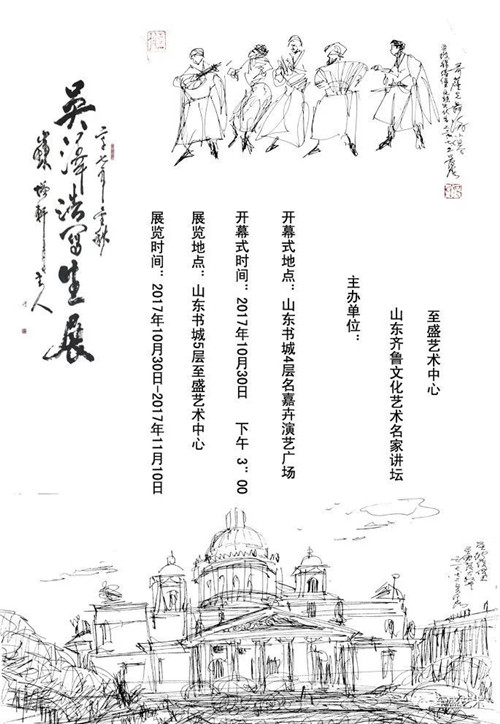 吳泽浩写生展
展览时间：2017年10月30日-2017年11月10日
展览地点：山东书城5层至盛艺术中心
开幕式时间：2017年10月30日 下午 3：00
开幕式地点：山东书城4层名嘉卉演艺广场
主办单位：
山东齐鲁文化艺术名家讲坛
至盛艺术中心